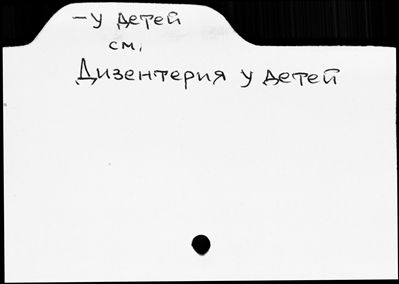 - у детей
см.
Дизентерия у детей